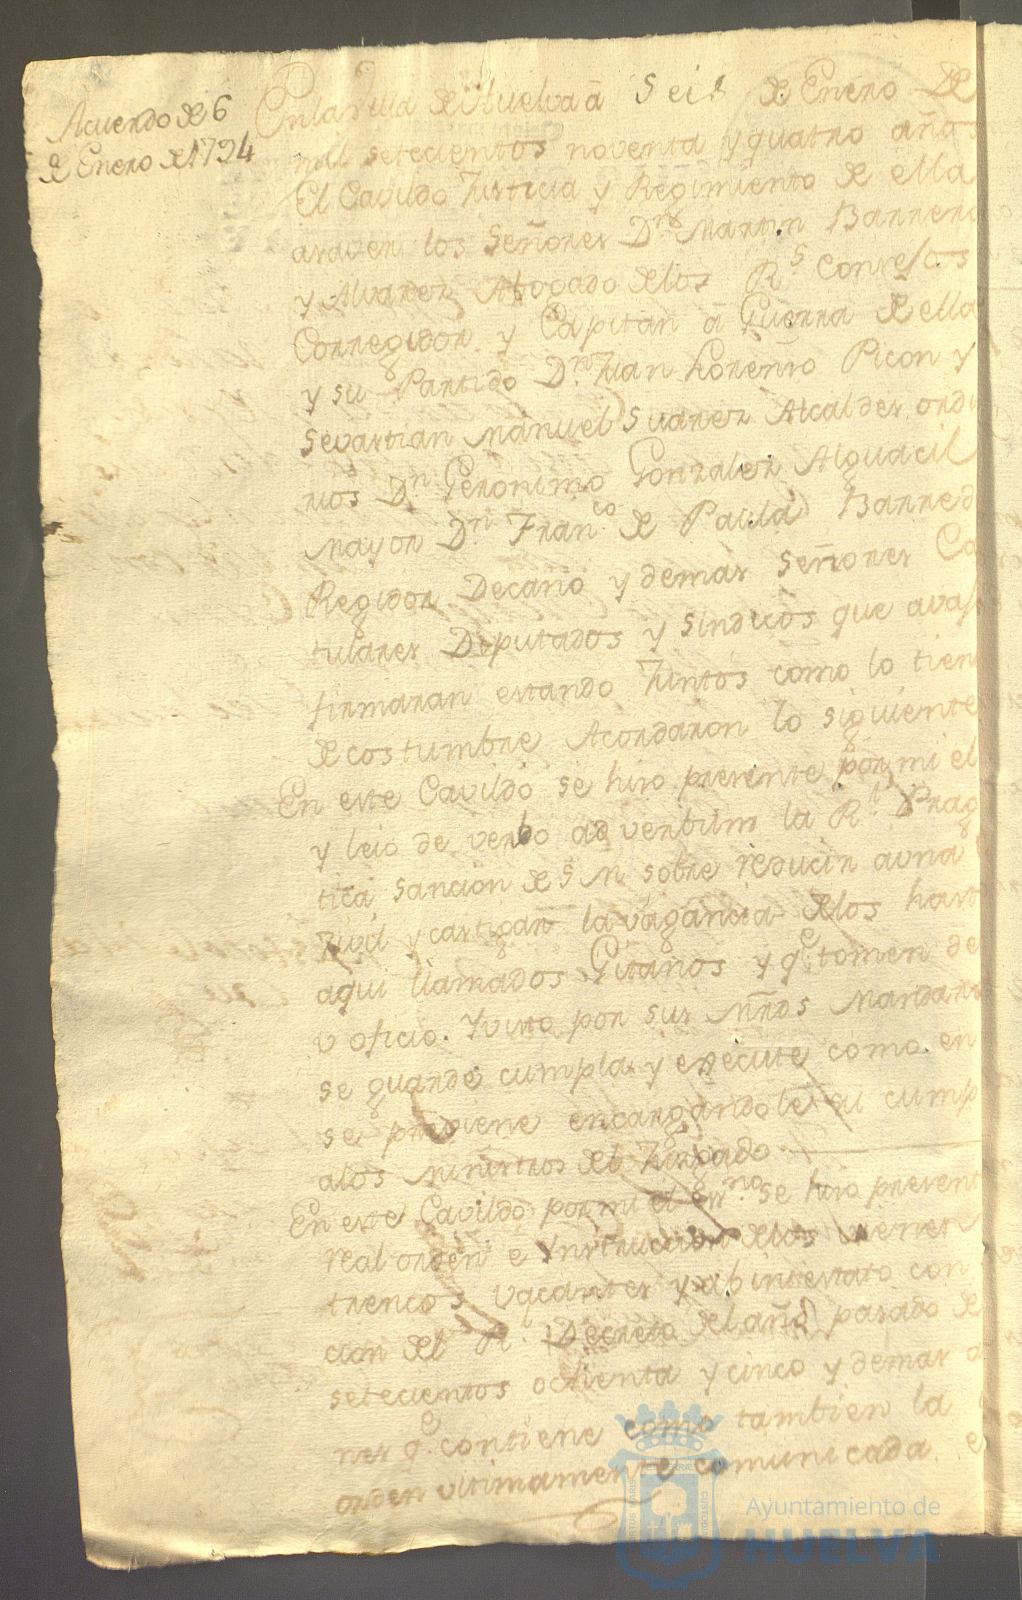 Acuerdo de 6
de Enero de 1794
En la Villa de Huelva â Seis de Enero de
mil setecientos noventa y quatro años
El Cavildo Justicia y Regimiento de ella
asaver los Señores Dn. Martin Barrera
y Alvarez Abogado delos Rs. Consejos
Corregidor y Capitan â Guerra de ella
y su Partido Dn. Juan Lorenzo Picon y
Sevastian Manuel Suarez Alcaldes ordi
rios Dn. Geronimo Gonzalez Alguacil
Mayor Dn. Franco. de Paula Barred
Regidor Decano y demas Señores Ca
tulares Diputados y Sindicos que avaj
firmaran estando Juntos como lo tien
de costumbre Acordaron lo siguiente
En este Cavildo se hizo presente por mi el
y leio de verbo ad verbum la Rl. Prag
tica sancion de S. M sobre reducir a vida
zivil y castigar la vagancia delos hast
aqui llamados Gitanos y qe. tomen de
u oficio. Y visto por sus mrds Mandaro
se guarde cumpla y execute como en
se previene encargandole su cump
alos ministros del Juzgado
En este Cavildo por mi el esno. se hizo present
real orden e Ynstruccion delos vienes
trencos vacantes y abintestato con
cion del Rl. Decreto del año pasado de
setecientos ochenta y cinco y demas
nes qe. contiene como tambien la
orden ultimamente comunicada
Ayuntamiento de
HUELVA